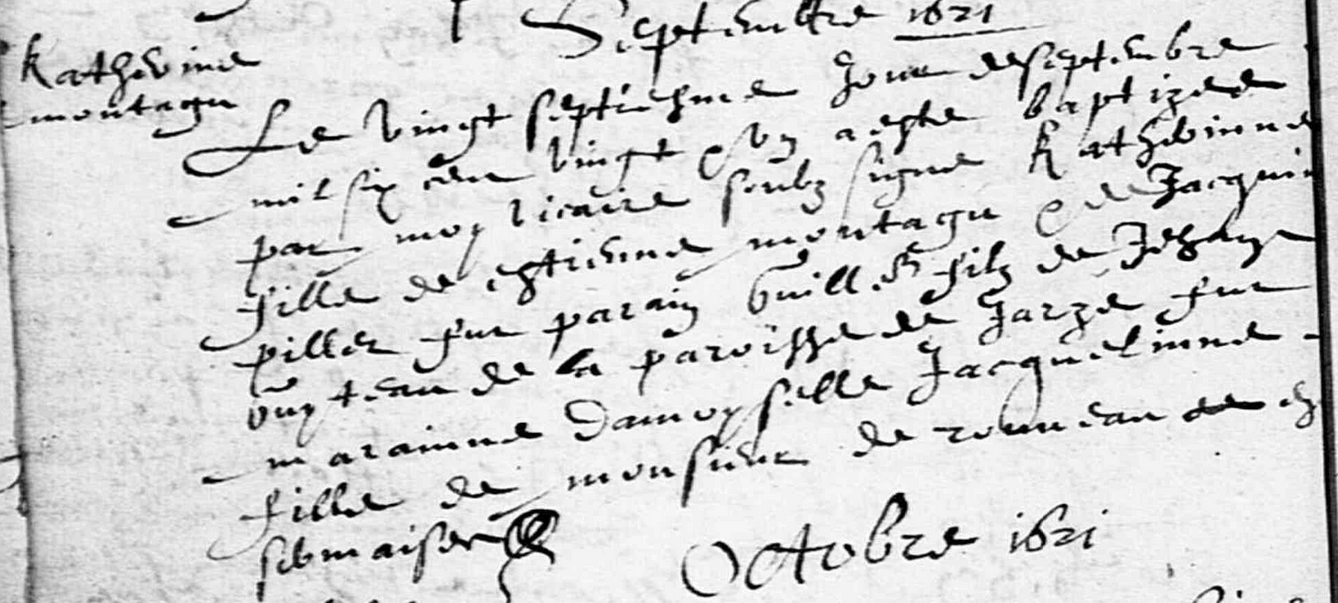 Septembre 1621
Katherine
montagu
Le vingt septiesme Jour de septembre
mil six cen vingt et un a este baptizee
par moy vicaire soubz signe Katherinne
fille de estienne montagu et de Jacquin
pillet fut parain Guill. filz de Jehan
de la paroisse de Jarze fut
marainne damoyselle Jacquelinne
fille de monsieur de
Octobre 1621